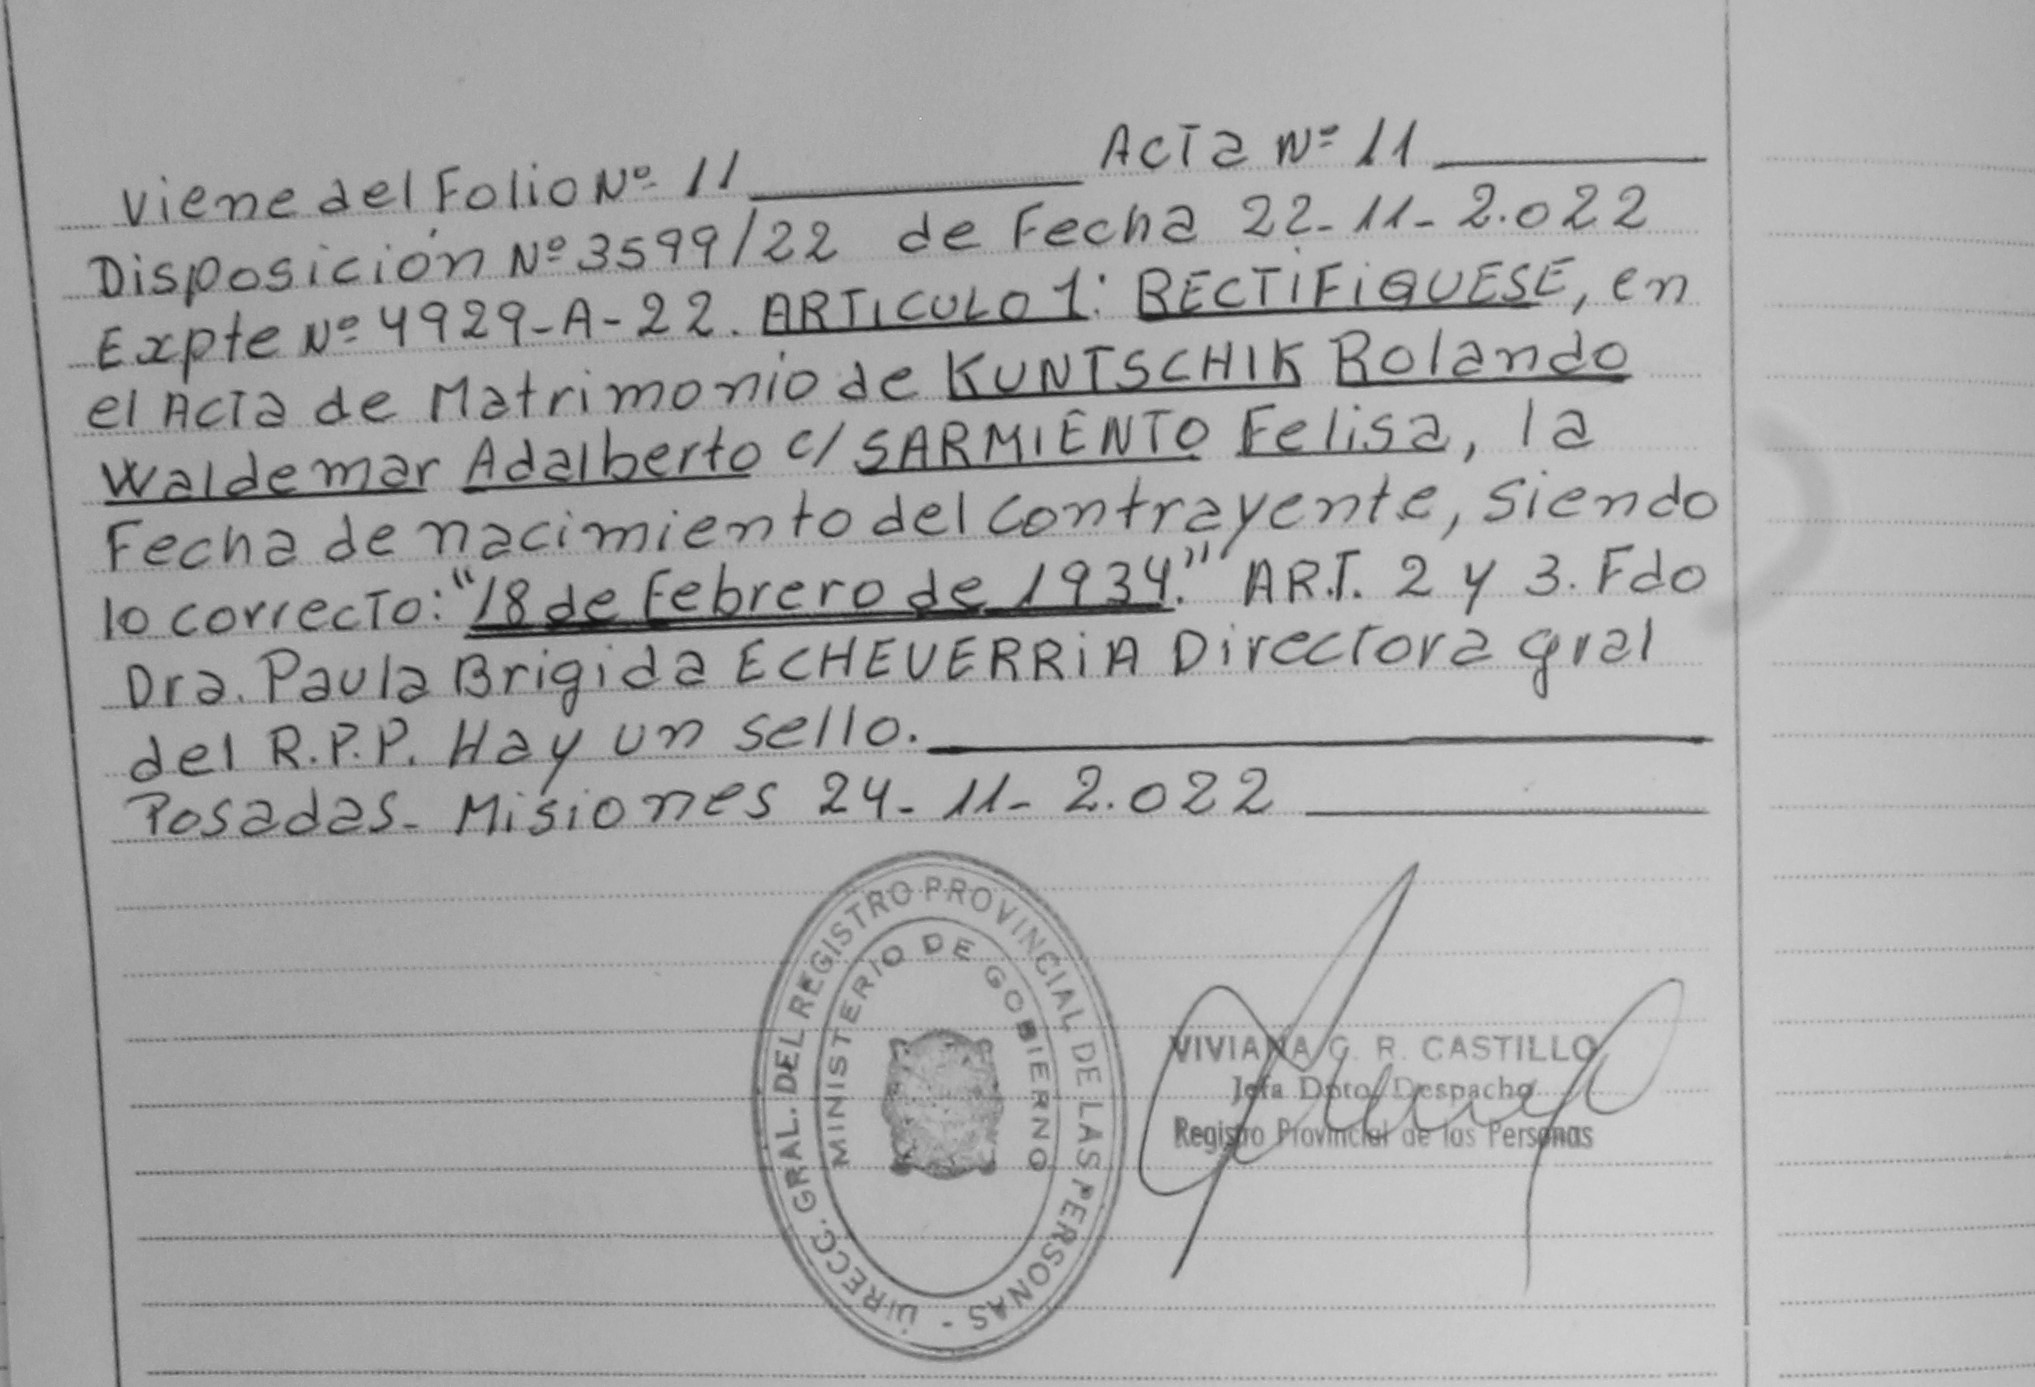 Viene del Folio Nº 11 ______ Acta Nº 11 ______
Disposición Nº 3599/22 de Fecha 22-11-2.022
Expte Nº 4929-A-22. ARTICULO 1: RECTIFIQUESE, en
el Acta de Matrimonio de KUNTSCHIK Rolando
Waldemar Adalberto c/ SARMIENTO Felisa, la
Fecha de nacimiento del contrayente, siendo
lo correcto: "18 de Febrero de 1934." ART. 2 y 3. Fdo
Dra. Paula Brigida ECHEVERRIA Directora gral
del R.P.P. Hay un sello.
Posadas- Misiones 24-11-2.022
DIRECC. GRAL. DEL REGISTRO PROVINCIAL DE LAS PERSONAS -
MINISTERIO DE GOBIERNO
VIVIANA G. R. CASTILLO
Jefa Dpto. Despacho
Registro Provincial de las Personas